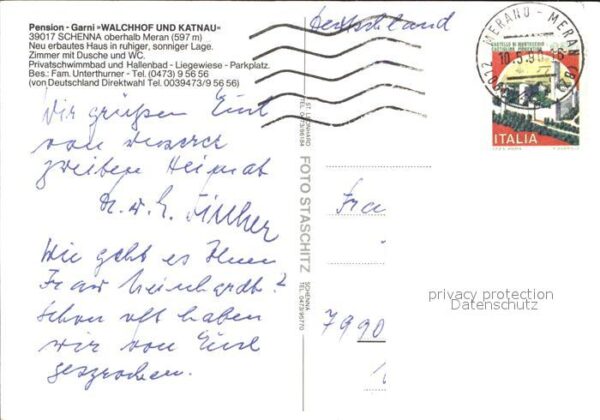 Pension - Garni »WALCHHOF UND KATNAU«
39017 SCHENNA oberhalb Meran (597 m)
Neu erbautes Haus in ruhiger, sonniger Lage.
Zimmer mit Dusche und WC.
Privatschwimmbad und Hallenbad - Liegewiese - Parkplatz.
Bes.: Fam. Unterthurner - Tel. (0473) 9 56 56
(von Deutschland Direktwahl Tel. 0039473/9 56 56)
Wir grüßen Euch
von unserer
zweiten Heimat
H. u. E. Fischer
Wie geht es Ihnen
Frau Meinhardt?
Schon oft haben
wir von Euch
gesprochen.
ST. LEONHARD
TEL. 0473/86184
FOTO STASCHITZ
SCHENNA
TEL. 0473/95770
Deutschland
MERANO - MERAN
ITALIA
Fra
7990
privacy protection
Datenschutz